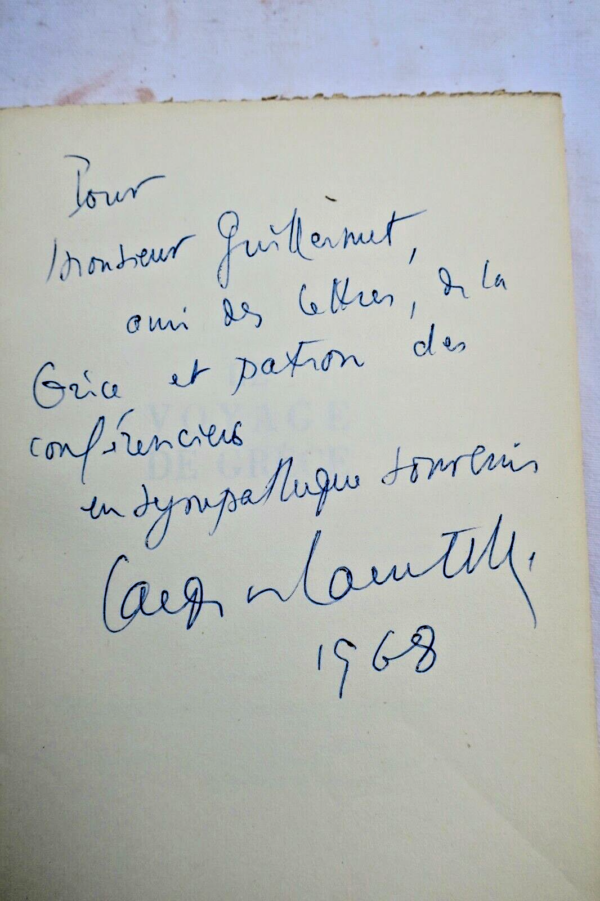 Pour
Monsieur Guillermut,
ami des lettres, de la
Grèce et patron des
conférenciers
en sympathique souvenir
Jacques de Lacretelle.
1968
VOYAGE
DE GRÈCE